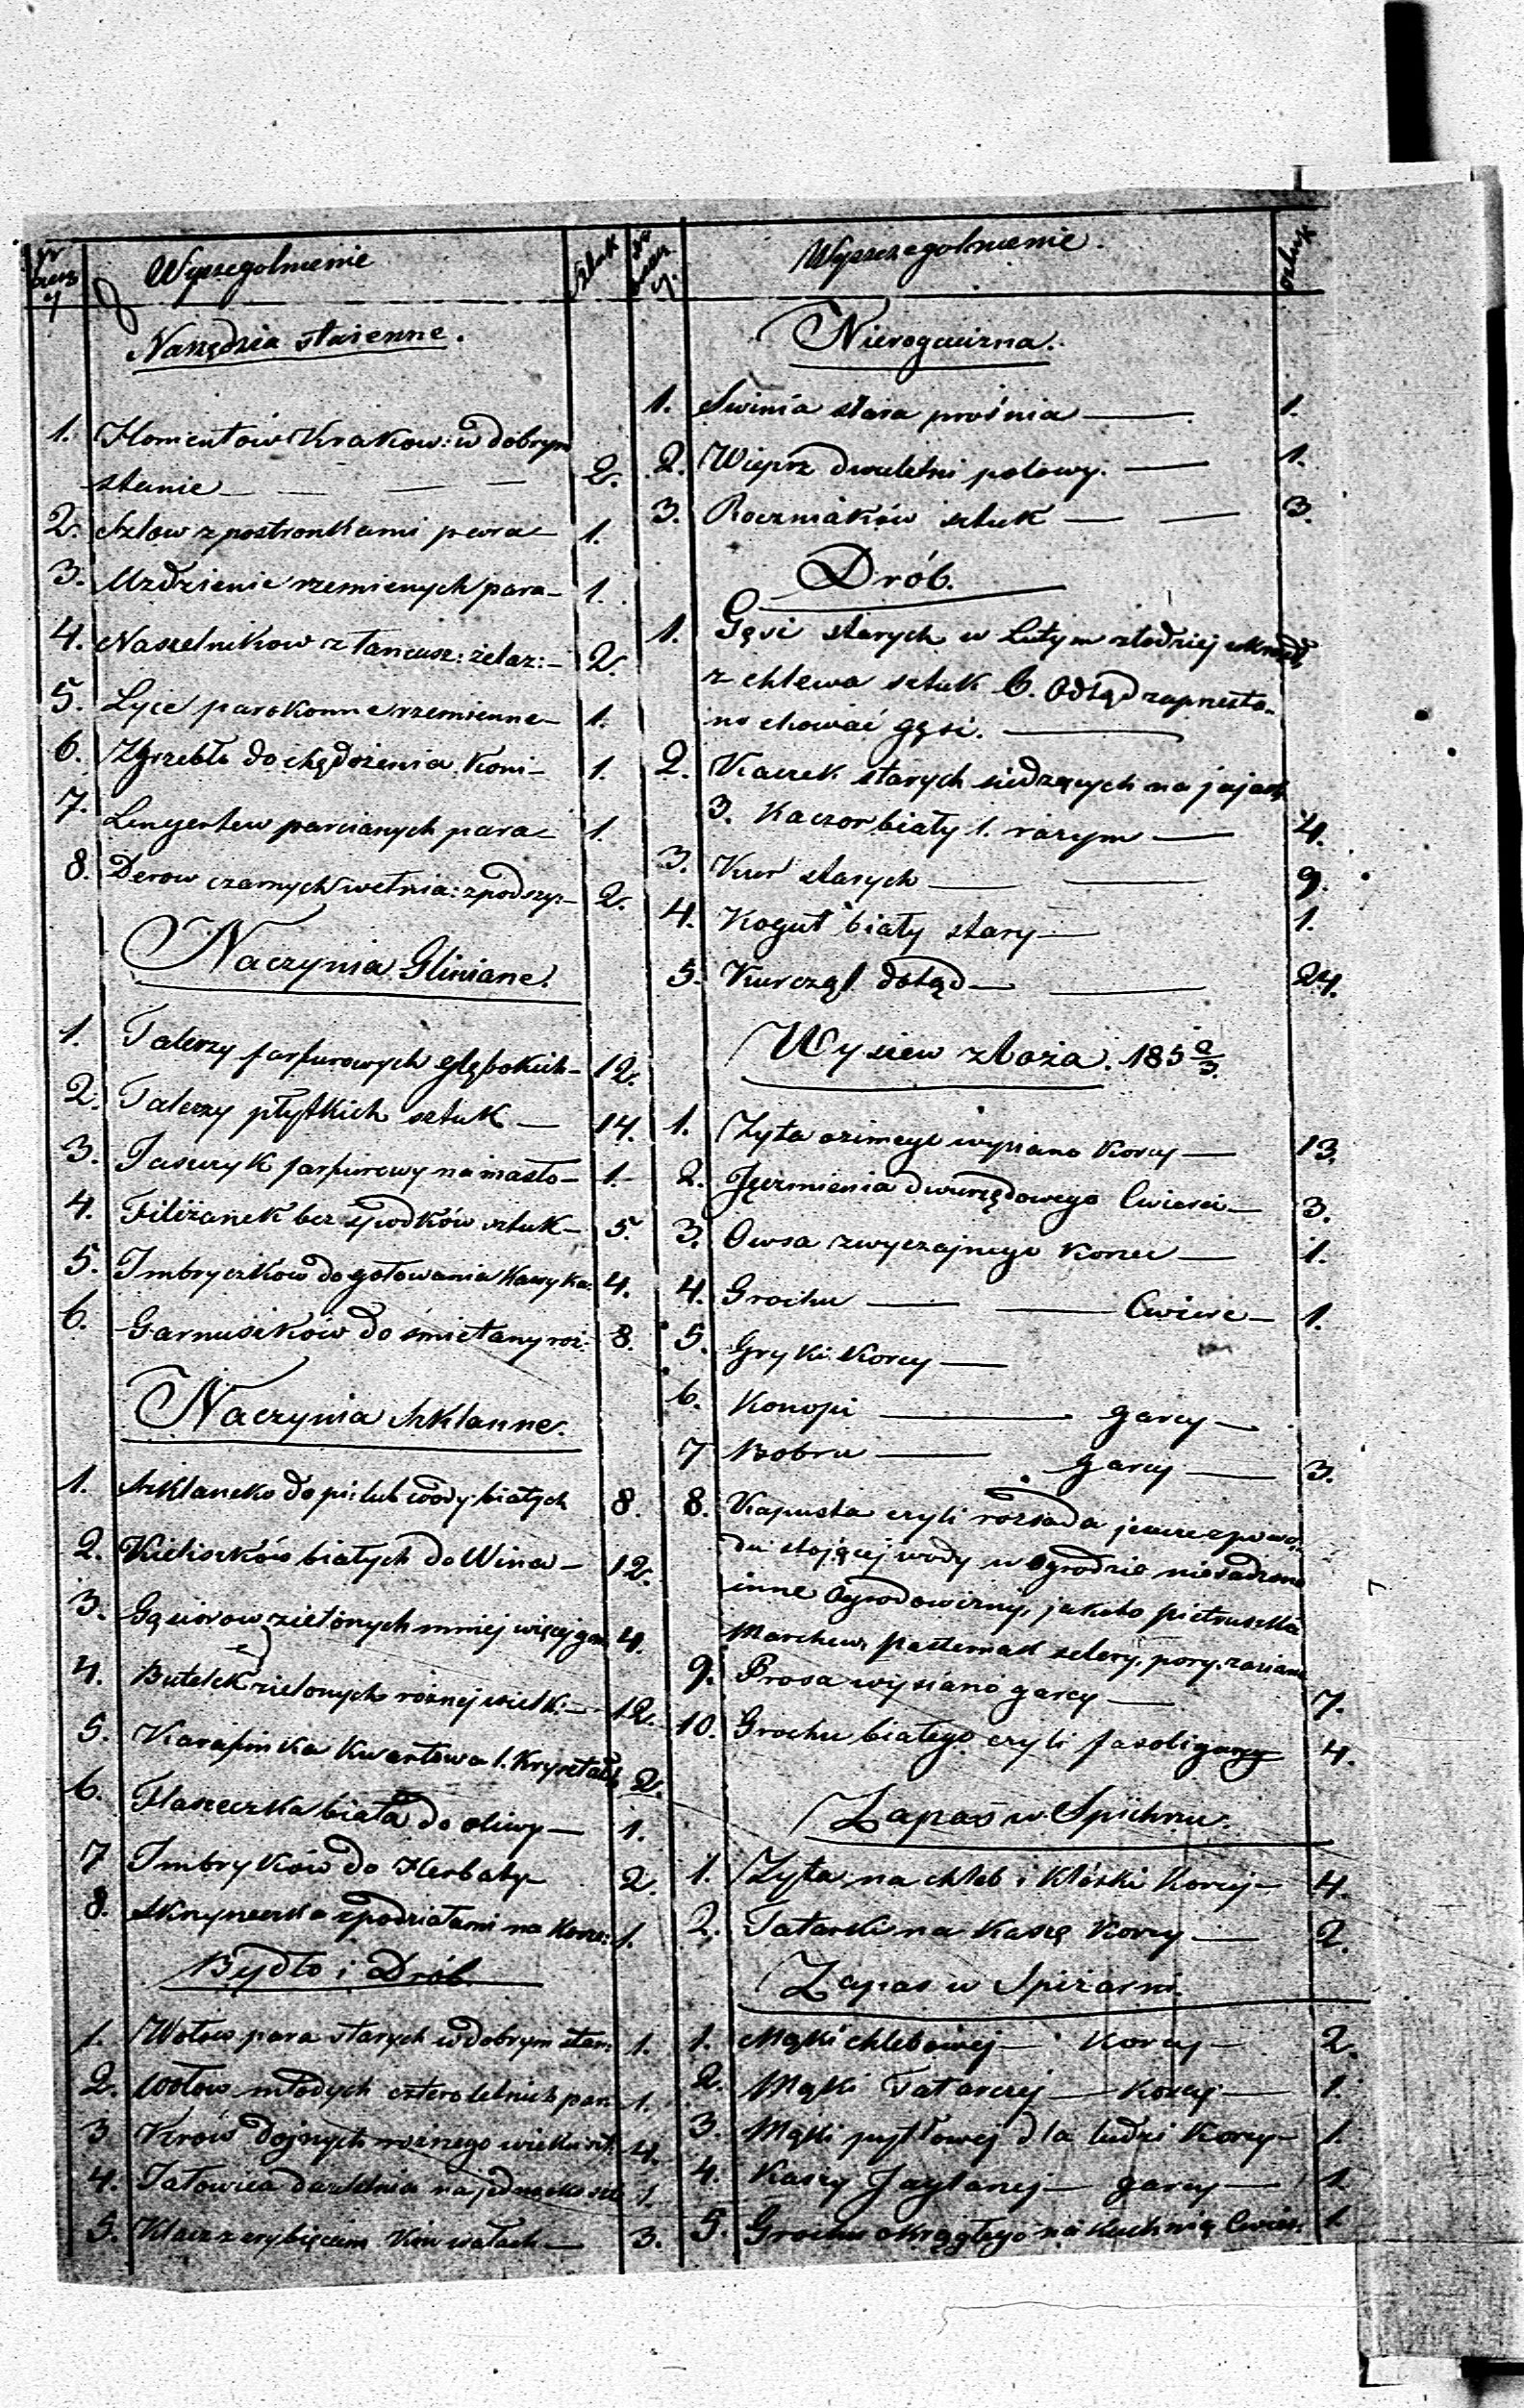 Wyszegolnienie Sztuk
Narzędzia stajenne.
1. Homientów Krakow: w dobrym
stanie 2.
2. Szlow z postronkami para 1.
3. Uzdzienic rzemienych para 1.
4. Naszelnikow z łancusz: żelaz: 2.
5. Lyce parokonne rzemienne 1.
6. Zgrzebło do chędożenia koni 1.
7. parcianych para 1.
8. Derow czarnych wełnia: z podszy: 2.
Naczynia Gliniane.
1. Talerzy farfurowych głębokich 12.
2. Talerzy płytkich sztuk 14.
3. farfurowy na masło 1.
4. Filiżanek bez spodków sztuk 5.
5. Imbryczków do gotowania Kawy ka: 4.
6. Garnuszków do śmietany roż: 8.
Naczynia szklanne.
1. do pi: lub wody białych 8.
2. Kieliszków białych do Wina 12.
3. Gąsiorow zielonych mniej więcej gar 4.
4. Butelek zielonych rożnej wielk: 12.
5. Karafinka Kwartowa 1. 2.
6. Flaszeczka biała do oliwy 1.
7 Imbryków do Herbaty 2.
8. Skrzyneczka z podziałami na Korze: 1.
Bydło i Drób.
1. Wołow para starych w dobrym stan: 1.
2. Wołow młodych cztero letnich par 1.
3 Krów dojnych rożnego wieku szt. 4.
4. Jałowica 1.
5. Klacz z źrybięciem 3.
Wyszczegolnienie. Sztuk
Nierogacizna.
1. Swinia stara prośnia 1.
2. Wieprz dwuletni połowy. 1.
3. Roczniaków sztuk 3.
Drób.
1. Gęsi starych w Lutym złodziej ukradł
z chlewa sztuk 6. Odtąd zaprzesta-
no chować gęsi.
2. Kaczek starych siedzących na jajach
3. Kaczor biały 1. razym 4.
3. Kur starych 9.
4. Kogut biały stary 1.
5. Kurcząt dotąd 24.
Wysiew zboża. 185 2/3.
1. Zyta ozimego wysiano Korcy 13.
2. Jęczmienia dwurzędowego Cwierci 3.
3. Owsa zwyczajnego Korzec 1.
4. Grochu Cwierc 1.
5. Gryki Korcy
6. Konopi garcy
7 Bobru garcy 3.
8. Kapusta czyli rozsada jeszcze z powo-
du stojącej wody w Ogrodzie niesadzona
inne Ogrodowizny, jakoto pietruszka
Marchew, Pasternak selery, pory, zasiane
9. Prosa wysiano garcy 7.
10. Grochu białego czyli fasoli garcy 4.
Zapas w Spichrzu.
1. Zyta, na chleb i Klóski Korcy 4.
2. Tatarki na Kaszę Korcy 2.
Zapas w Spiżarni
1. Mąki chlebowej Korcy 2.
2. Mąki Tatarczej Korcy 1.
3. Mąki pytlowej dla ludzi Korcy 1.
4. Kaszy Jaglanej garcy 1
5. Grochu okrągłego na Kuchnią Cwierc 1.